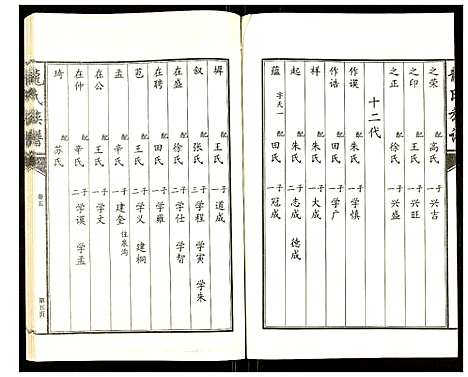 龍氏族譜
之荣 配高氏 一子 兴吉
之印 配王氏 一子 兴旺
之正 配徐氏 一子 兴盛
十二代
作谟 配朱氏 一子 学慎
作诰 配田氏 一子 学广
样 配朱氏 一子 大成
起 配朱氏 二子 志成 德成
蕴 字天一 配田氏 一子 冠成
墀 配王氏 一子 道成
叙 配张氏 三子 学程 学寅 学朱
在盛 配徐氏 二子 学仕 学智
在聘 配田氏 一子 学雍
苞 配王氏 二子 学义 建桐
孟 配辛氏 一子 建奎 住泉沟
在公 配王氏 一子 学文
在仲 配辛氏 二子 学谟 学孟
琦 配苏氏
龍氏族譜
卷五
第五页